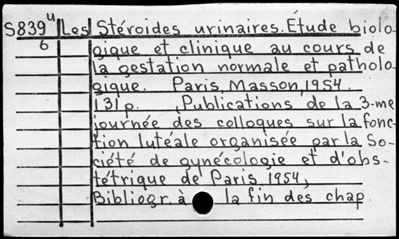 S839u Les Stéroides urinaires. Étude biolo-
6 gique et clinique au cours de
la gestation normale et patholo-
gique. Paris, Masson, 1954.
131p. (Publications de la 3-me
journée des colloques sur la fonc-
tion lutéale organisée par la So-
ciété de gynécologie et d'obs-
tétrique de Paris 1954)
Bibliogr. à la fin des chap.